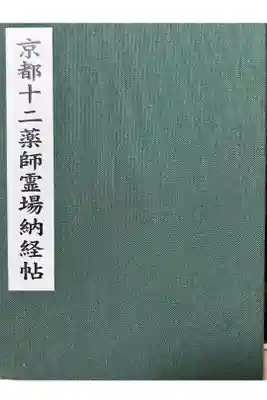 京都十二薬師霊場納経帖